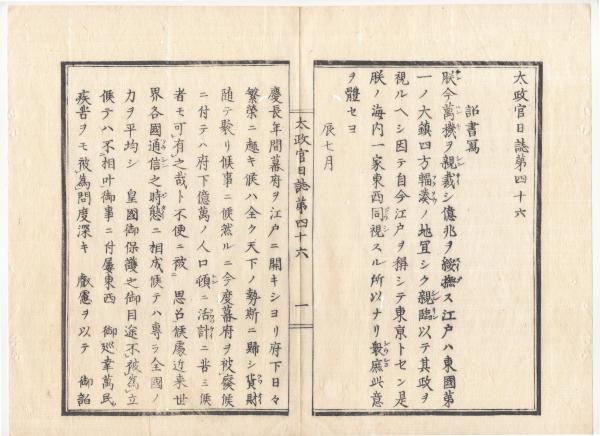 太政官日誌第四十六
詔書寫
朕今萬機ヲ親裁シ億兆ヲ綏撫ス江戸ハ東國第
一ノ大鎭四方輻湊ノ地宜シク親臨以テ其政ヲ
視ルヘシ因テ自今江戸ヲ稱シテ東京トセン是
朕ノ海内一家東西同視スル所以ナリ衆庶此意
ヲ體セヨ
辰七月
太政官日誌第四十六 一
慶長年間幕府ヲ江戸ニ開キシヨリ府下日々
繁榮ニ趣キ候ハ全ク天下ノ勢斯ニ歸シ貨財
随テ聚リ候事ニ候然ルニ今度幕府ヲ被廢候
ニ付テハ府下億萬ノ人口頓ニ活計ニ苦ミ候
者モ可有之哉ト不便ニ被 思召候處近来世
界各國通信之時態ニ相成候テハ専ラ全國ノ
力ヲ平均シ 皇國御保護之御目途不被爲立
候テハ不相叶御事ニ付屢東西 御巡幸萬民
疾苦ヲモ被爲問度深キ 叡慮ヲ以テ 御詔